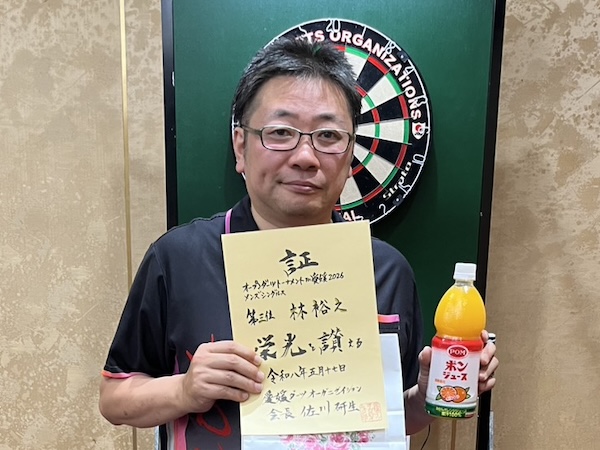 TS ORGANIZATION
Strata
証
オープンダーツトーナメント in 愛媛2026
メンズシングルス
第三位 林 裕之
栄光を讃える
令和八年五月十七日
愛媛ダーツオーガニゼイション
会長 佐川 研生
POM
ポン
ジュース